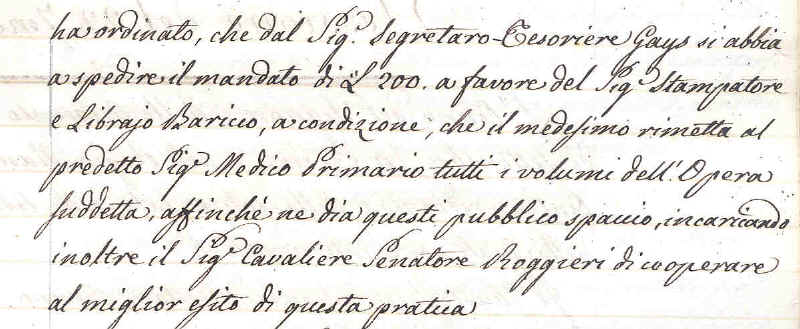 ha ordinato, che dal Sig.r Segretaro-Tesoriere Gays si abbia
a spedire il mandato di £ 200. a favore del Sig.r Stampatore
e Librajo Baricco, a condizione, che il medesimo rimetta al
predetto Sig.r Medico Primario tutti i volumi dell'Opera
suddetta, affinché ne dia questi pubblico spaccio, incaricando
inoltre il Sig.r Cavaliere Senatore Roggieri di cooperare
al miglior esito di questa pratica